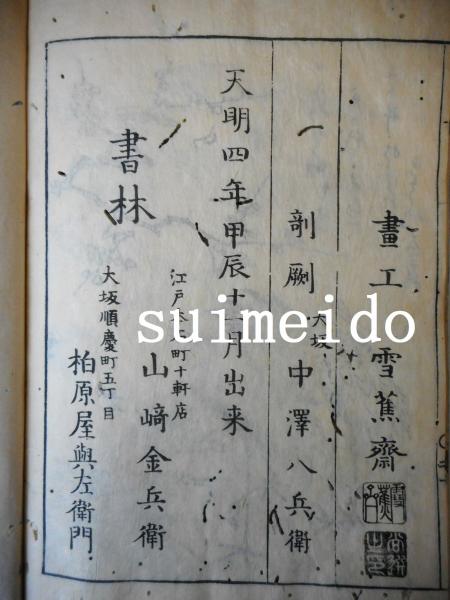 畫工 雪蕉齋
剞劂 大坂 中澤八兵衛
天明四年甲辰十一月出来
書林
江戸本石町十軒店
山﨑金兵衛
大坂順慶町五丁目
柏原屋與左衛門
suimeido